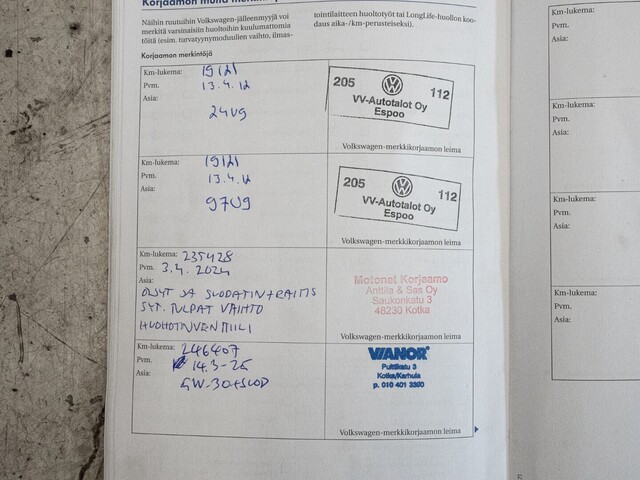 Näihin ruutuihin Volkswagen-jälleenmyyjä voi
merkitä varsinaisiin huoltoihin kuulumattomia
töitä (esim. tarvatyynymoduulien vaihto, ilmas-
tointilaitteen huoltotyöt tai LongLife-huollon koo-
daus aika-/km-perusteiseksi).
Korjaamon merkintöjä
Km-lukema: 19121
Pvm. 13.4.12
Asia:
24U9
205 112
VV-Autotalot Oy
Espoo
Volkswagen-merkkikorjaamon leima
Km-lukema: 19121
Pvm. 13.4.12
Asia:
97U9
205 112
VV-Autotalot Oy
Espoo
Volkswagen-merkkikorjaamon leima
Km-lukema: 235428
Pvm. 3.4.2024
Asia:
ÖLJYT JA SUODATIN + RAITIS
SYT. TULPAT VAIHTO
Motonet Korjaamo
Anttila & Sas Oy
Saukonkatu 3
48230 Kotka
Volkswagen-merkkikorjaamon leima
Km-lukema: 246407
Pvm. 14.3-25
Asia: 5W-30+SUOD
VIANOR
Kotka/Karhula
p. 010 401 3390
Volkswagen-merkkikorjaamon leima
Km-lukema:
Pvm.
Asia:
Km-lukema:
Pvm.
Asia:
Km-lukema:
Pvm.
Asia: